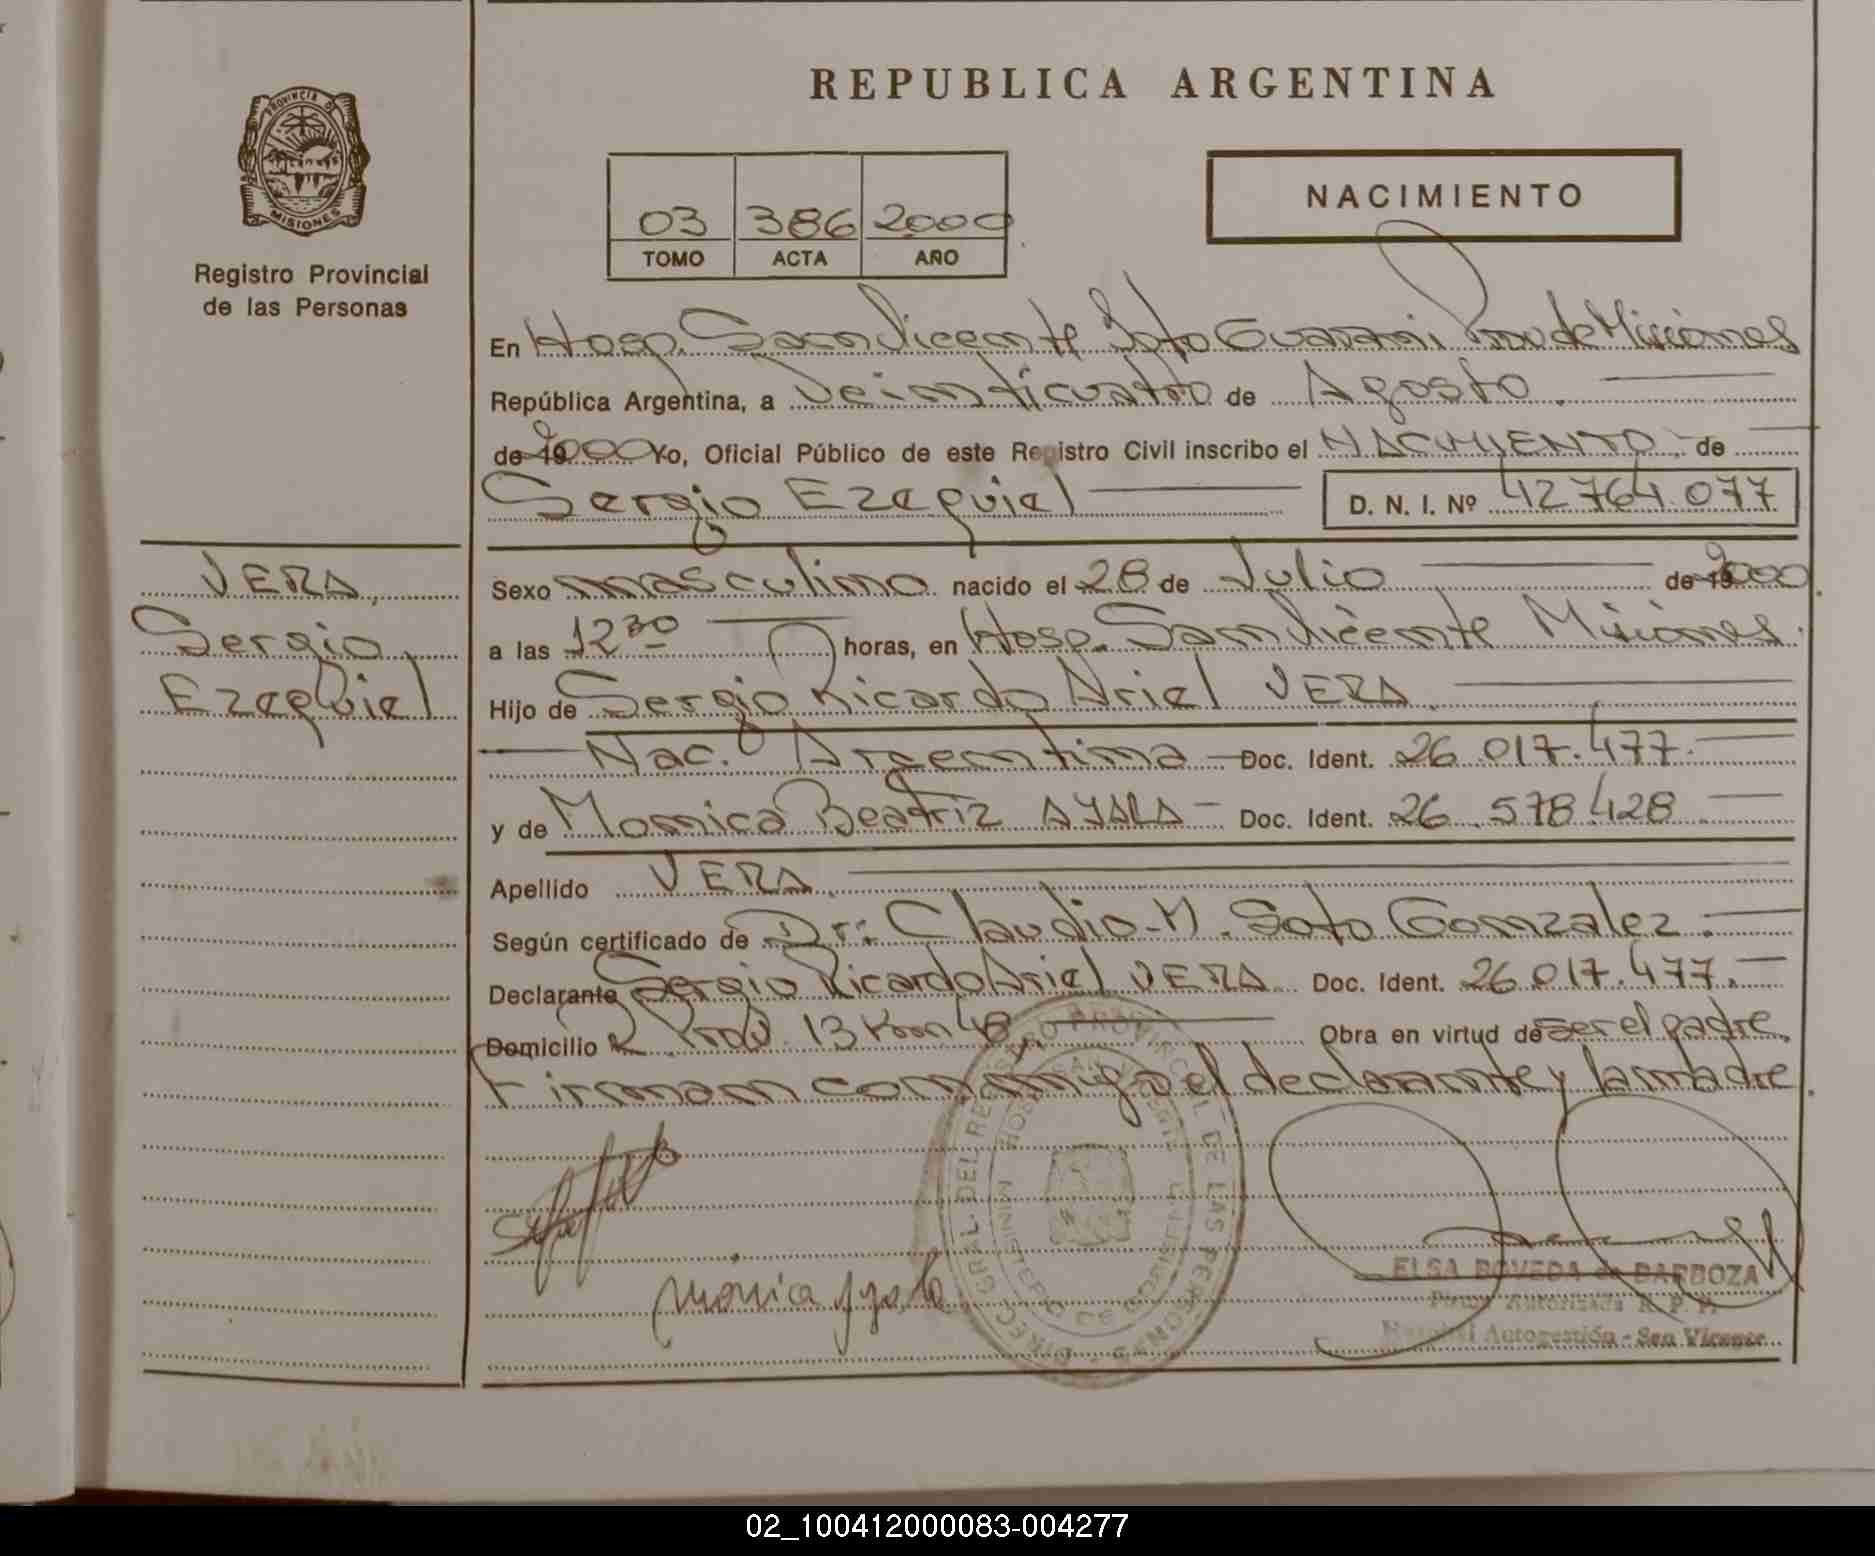 REPUBLICA ARGENTINA
PROVINCIA D
MISIONES
Registro Provincial
de las Personas
03 386 2000
TOMO ACTA AÑO
NACIMIENTO
En Hosp. San Vicente Dpto Guarani Prov de Misiones
República Argentina, a Veinticuatro de Agosto.
de 19 2000 Yo, Oficial Público de este Registro Civil inscribo el NACIMIENTO. de
Sergio Ezequiel D. N. I. Nº 42764.077
VERA,
Sergio
Ezequiel
Sexo masculino nacido el 28 de Julio de 19 2000
a las 12 30 horas, en Hosp. San Vicente Misiones.
Hijo de Sergio Ricardo Ariel VERA
Nac. Argentina Doc. Ident. 26.017.477.
y de Monica Beatriz AYALA Doc. Ident. 26.578.428
Apellido VERA
Según certificado de Dr: Claudio M. Soto Gonzalez.
Declarante Sergio Ricardo Ariel VERA Doc. Ident. 26.017.477.
Domicilio R. Prov. 13 Km 48 Obra en virtud de ser el padre.
Firman conmigo el declarante y la madre.
DIREC. GRAL. DEL REGISTRO PROVINCIAL DE LAS PERSONAS
MINISTERIO DE GOBIERNO
Mónica Ayala
ELSA BOVEDA de BARBOZA
Firma Autorizada R. P. P.
Hospital Autogestión - San Vicente
02_100412000083-004277